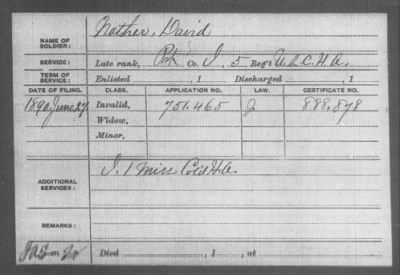 Nother, David
NAME OF SOLDIER:
SERVICE: Late rank, Pvt Co. I, 5 Reg't U.S.C.H.A.
TERM OF SERVICE: Enlisted , 1 Discharged , 1
DATE OF FILING. CLASS. APPLICATION NO. LAW. CERTIFICATE NO.
1890 June 27 Invalid, 751.465 J 888,878
Widow,
Minor,
ADDITIONAL SERVICES: I. 1 Miss Cold H.A.
REMARKS:
Died , 1 , at